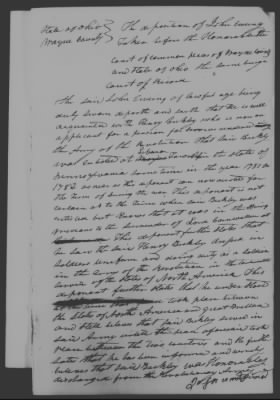 State of Ohio } The deposition of John Ewing
Wayne County } Taken before the Honorable the
court of common pleas of Wayne County
and State of Ohio the same being a
Court of Record
The said John Ewing of lawful age being
duly sworn deposeth and saith that he is well
acquainted with Henry Buckley who is now an
applicant for a pension for services rendered in
the Army of the Revolution that said Buckley
was enlisted at in the State of
Pennsylvania some time in the year 1781 or
1782 as near as this deponent can now recollect for
the term of during the war This deponent is not
certain as to the time when said Buckley was
enlisted but knows that it was in the Army
previous to the surrender of Lord Cornwallis at
This deponent further states that
he saw the said Henry Buckley dressed in
soldiers uniform and doing duty as a soldier
in the army of the revolution in the
service of the States of North America This
deponent further states that he understood
took place between
the States of North America and great Britain
and still believes that said Buckley served in
said Army until the peace aforesaid took
place between the two countries and he further
states that he has been informed and verily
believes that said Buckley was Honorably
discharged from the Revolutionary Army
John Ewing